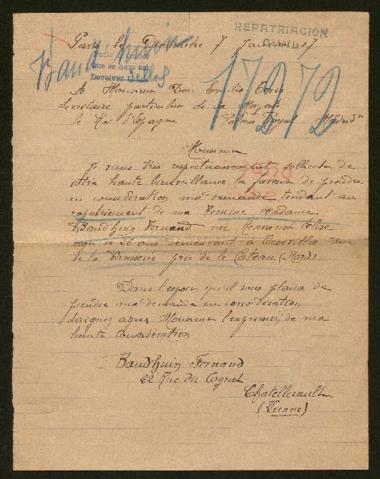 REPATRIACIÓN
17272
Baudhuin
A Monsieur Don Emilio
Secretaire particulier de sa Majesté
le Roi d'Espagne Palais Royal Madrid
Monsieur
Je viens très respectueusement solliciter de
votre haute bienveillance la faveur de prendre
en considération ma demande tendant au
rapatriement de ma Femme Madame
Baudhuin Fernand née
26 ans demeurant à Troisvilles rue
de la Brasserie près de le Cateau (Nord).
Dans l'espoir qu'il vous plaira de
prendre ma demande en considération
daignez agréer Monsieur l'expression de ma
haute considération
Baudhuin Fernand
22 Rue du Cognet
Chatellerault
(Vienne)